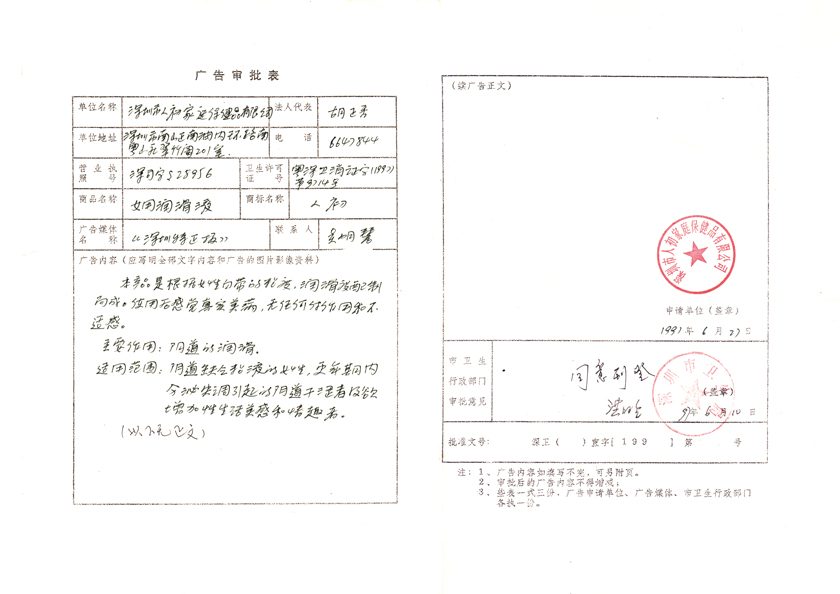 广告审批表
单位名称 深圳市人初家庭保健品有限公司 法人代表 胡正秀
单位地址 深圳市南山区南油内环路南
粤山花翠竹阁201室. 电话 6647844
营业执照号 深司字S28956 卫生许可证号 粤深卫消证字(1997)
第9714号
商品名称 女用润滑液 商标名称 人初
广告媒体名称 《深圳特区报》 联系人
广告内容(应写明全部文字内容和广告的图片影像资料)
本产品是根据女性白带的粘度,润滑度配制
而成。使用后感觉真实美满,无任何付作用和不
适感。
主要作用:阴道的润滑。
适用范围:阴道缺分粘液的女性,更年期内
分泌失调引起的阴道干涩者及欲
增加性生活美感和情趣者。
(以下无正文)
(续广告正文)
深圳市人初家庭保健品有限公司
申请单位(签章)
1997年6月27日
市卫生
行政部门
审批意见
同意刊登
深圳市卫
(签章)
97年6月10日
批准文号: 深卫( )宣字[199 ]第 号
注:1、广告内容如填写不完,可另附页。
2、审批后的广告内容不得增减;
3、些表一式三份,广告申请单位、广告媒体、市卫生行政部门
各执一份。